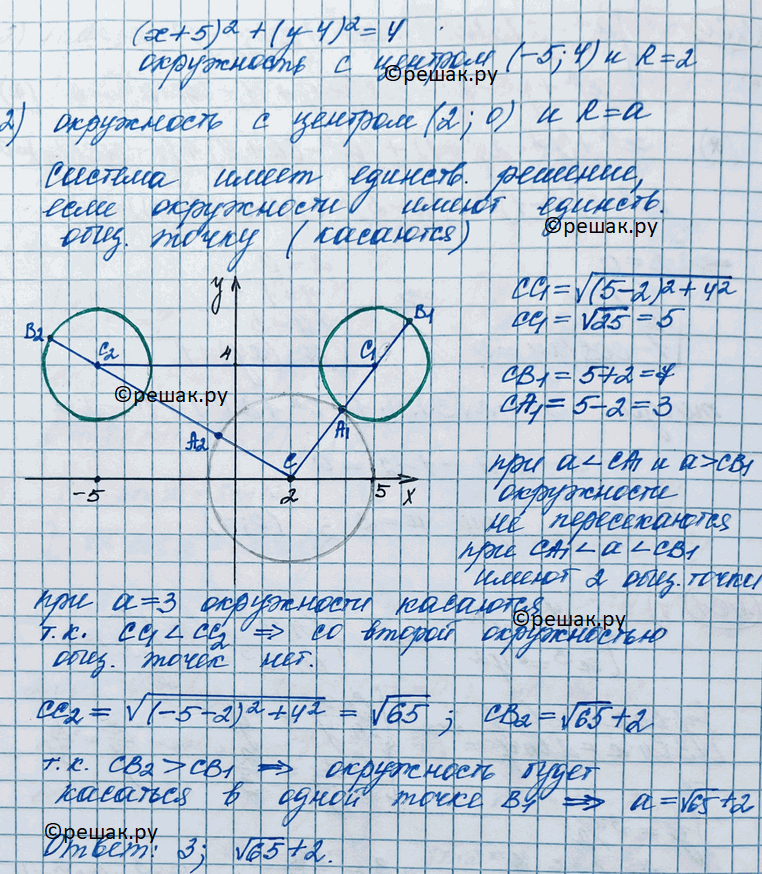 (x+5)² + (y-4)² = 4
окружность с центром (-5; 4) и R=2
©решак.ру
2) окружность с центром (2; 0) и R=a
Система имеет единств. решение,
если окружности имеют единств.
общ. точку (касаются)
©решак.ру
CC₁ = √(5-2)²+4²
CC₁ = √25 = 5
CB₁ = 5+2 = 7
CA₁ = 5-2 = 3
y
B₂
C₂
4
C₁
B₁
©решак.ру
A₂
A₁
C
-5
2
5
x
при a<CA₁ и a>CB₁
окружности
не пересекаются
при CA₁ < a < CB₁
имеют 2 общ. точки
при a=3 окружности касаются
©решак.ру
т.к. CC₁ < CC₂ ⇒ со второй окружностью
общ. точек нет.
CC₂ = √(-5-2)²+4² = √65 ; CB₂ = √65+2
т.к. CB₂ > CB₁ ⇒ окружность будет
касаться в одной точке B₁ ⇒ a = √65+2
©решак.ру
Ответ: 3; √65+2.